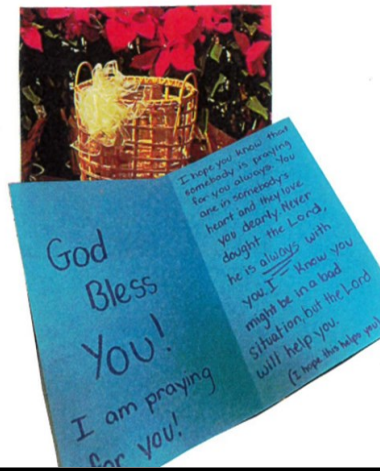 God
Bless
You!
I am praying
for you!
I hope you know that
somebody is praying
for you always. You
are in somebody's
heart and they love
you dearly. Never
dought the Lord,
he is always with
you. I know you
might be in a bad
situation, but the Lord
will help you.
(I hope this helps you)